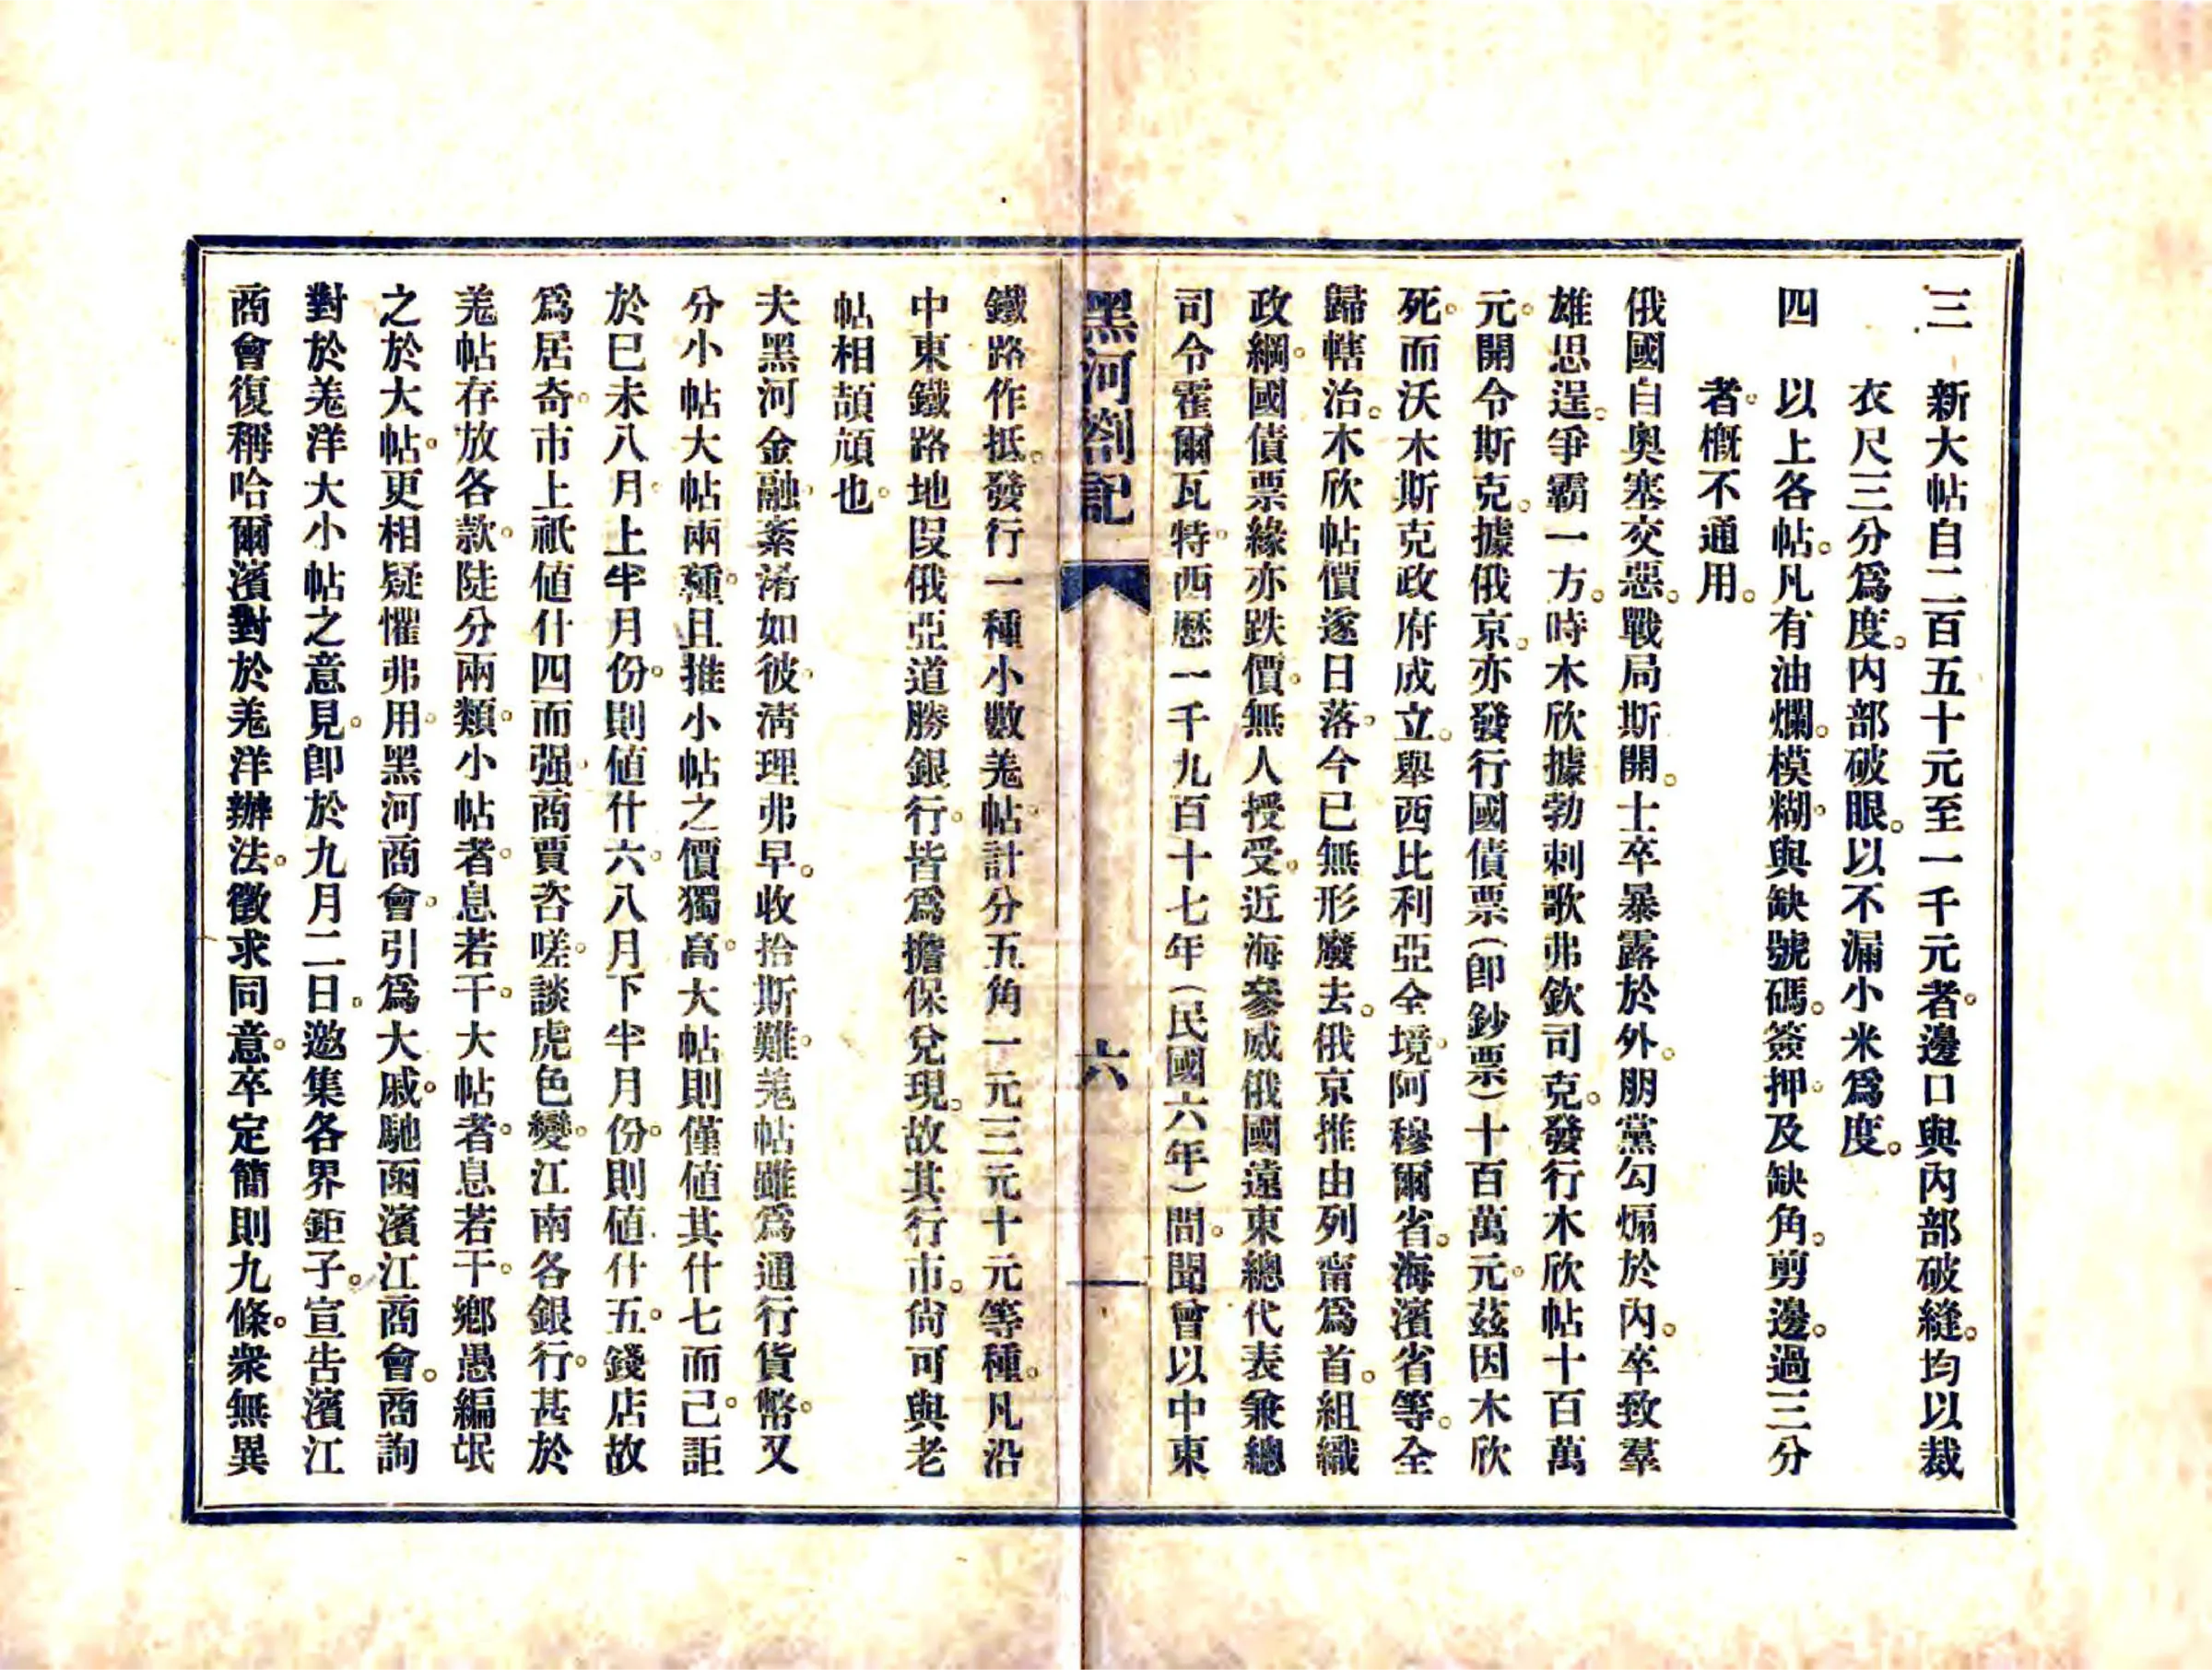 三　新大帖自二百五十元至一千元者。邊口與內部破縫。均以裁
衣尺三分爲度。內部破眼。以不漏小米爲度。
四　以上各帖。凡有油爛。模糊。與缺號碼。簽押。及缺角。剪邊。過三分
者。槪不通用。
俄國自奧塞交惡。戰局斯開。士卒暴露於外。朋黨勾煽於內。卒致羣
雄思逞。爭霸一方。時木欣據勃刺歌弗欽司克。發行木欣帖十百萬
元。開令斯克。據俄京。亦發行國債票(即鈔票)十百萬元。茲因木欣
死。而沃木斯克政府成立。舉西比利亞全境。阿穆爾省。海濱省等。全
歸轄治。木欣帖價遂日落。今已無形廢去。俄京推由列甯爲首。組織
政綱。國債票緣亦跌價。無人授受。近海參威俄國遠東總代表兼總
司令霍爾瓦特。西歷一千九百十七年(民國六年)間。聞曾以中東
黑河劄記　六
鐵路作抵。發行一種小數羌帖。計分五角一元三元十元等種。凡沿
中東鐵路地段俄亞道勝銀行。皆爲擔保兌現。故其行市。尙可與老
帖相頡頏也。
夫黑河金融。紊淆如彼。淸理弗早。收拾斯難。羌帖雖爲通行貨幣。又
分小帖大帖兩種。且推小帖之價獨高。大帖則僅値其什七而已。詎
於己未八月。上半月份。則値什六。八月下半月份。則値什五。錢店故
爲居奇。市上祇値什四而强。商賈咨嗟。談虎色變。江南各銀行。甚於
羌帖存放各款。陡分兩類。小帖者。息若干。大帖者。息若干。鄉愚編氓
之於大帖。更相疑懼弗用。黑河商會。引爲大戚。馳函濱江商會。商詢
對於羌洋大小帖之意見。即於九月二日。邀集各界鉅子。宣吿濱江
商會復稱哈爾濱對於羌洋辦法。徵求同意。卒定簡則九條。衆無異